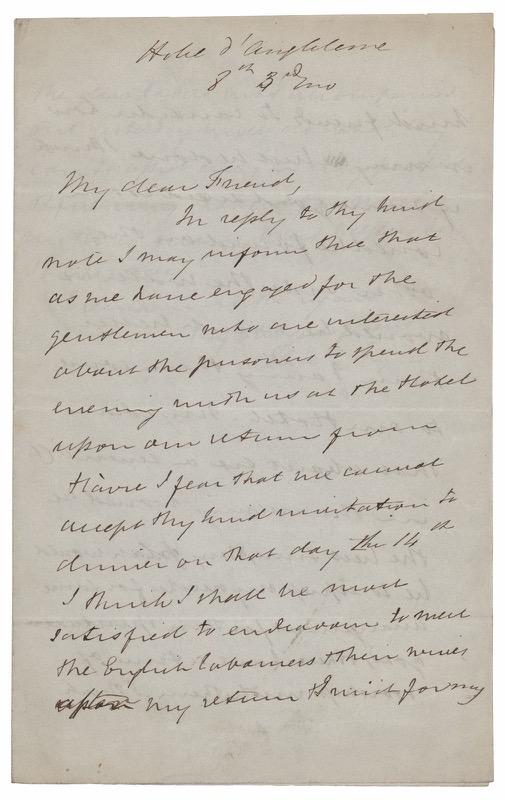 Hotel d'Angleterre
8th 3rd mo
My dear Friend,
In reply to thy kind
note I may inform thee that
as we have engaged for the
gentlemen who are interested
about the prisoners to spend the
evening with us at the Hotel
upon our return from
Havre I fear that we cannot
accept thy kind invitation to
dinner on that day the 14th
I think I shall be most
satisfied to endeavour to meet
the English Labourers & their wives
my return & I wish for my